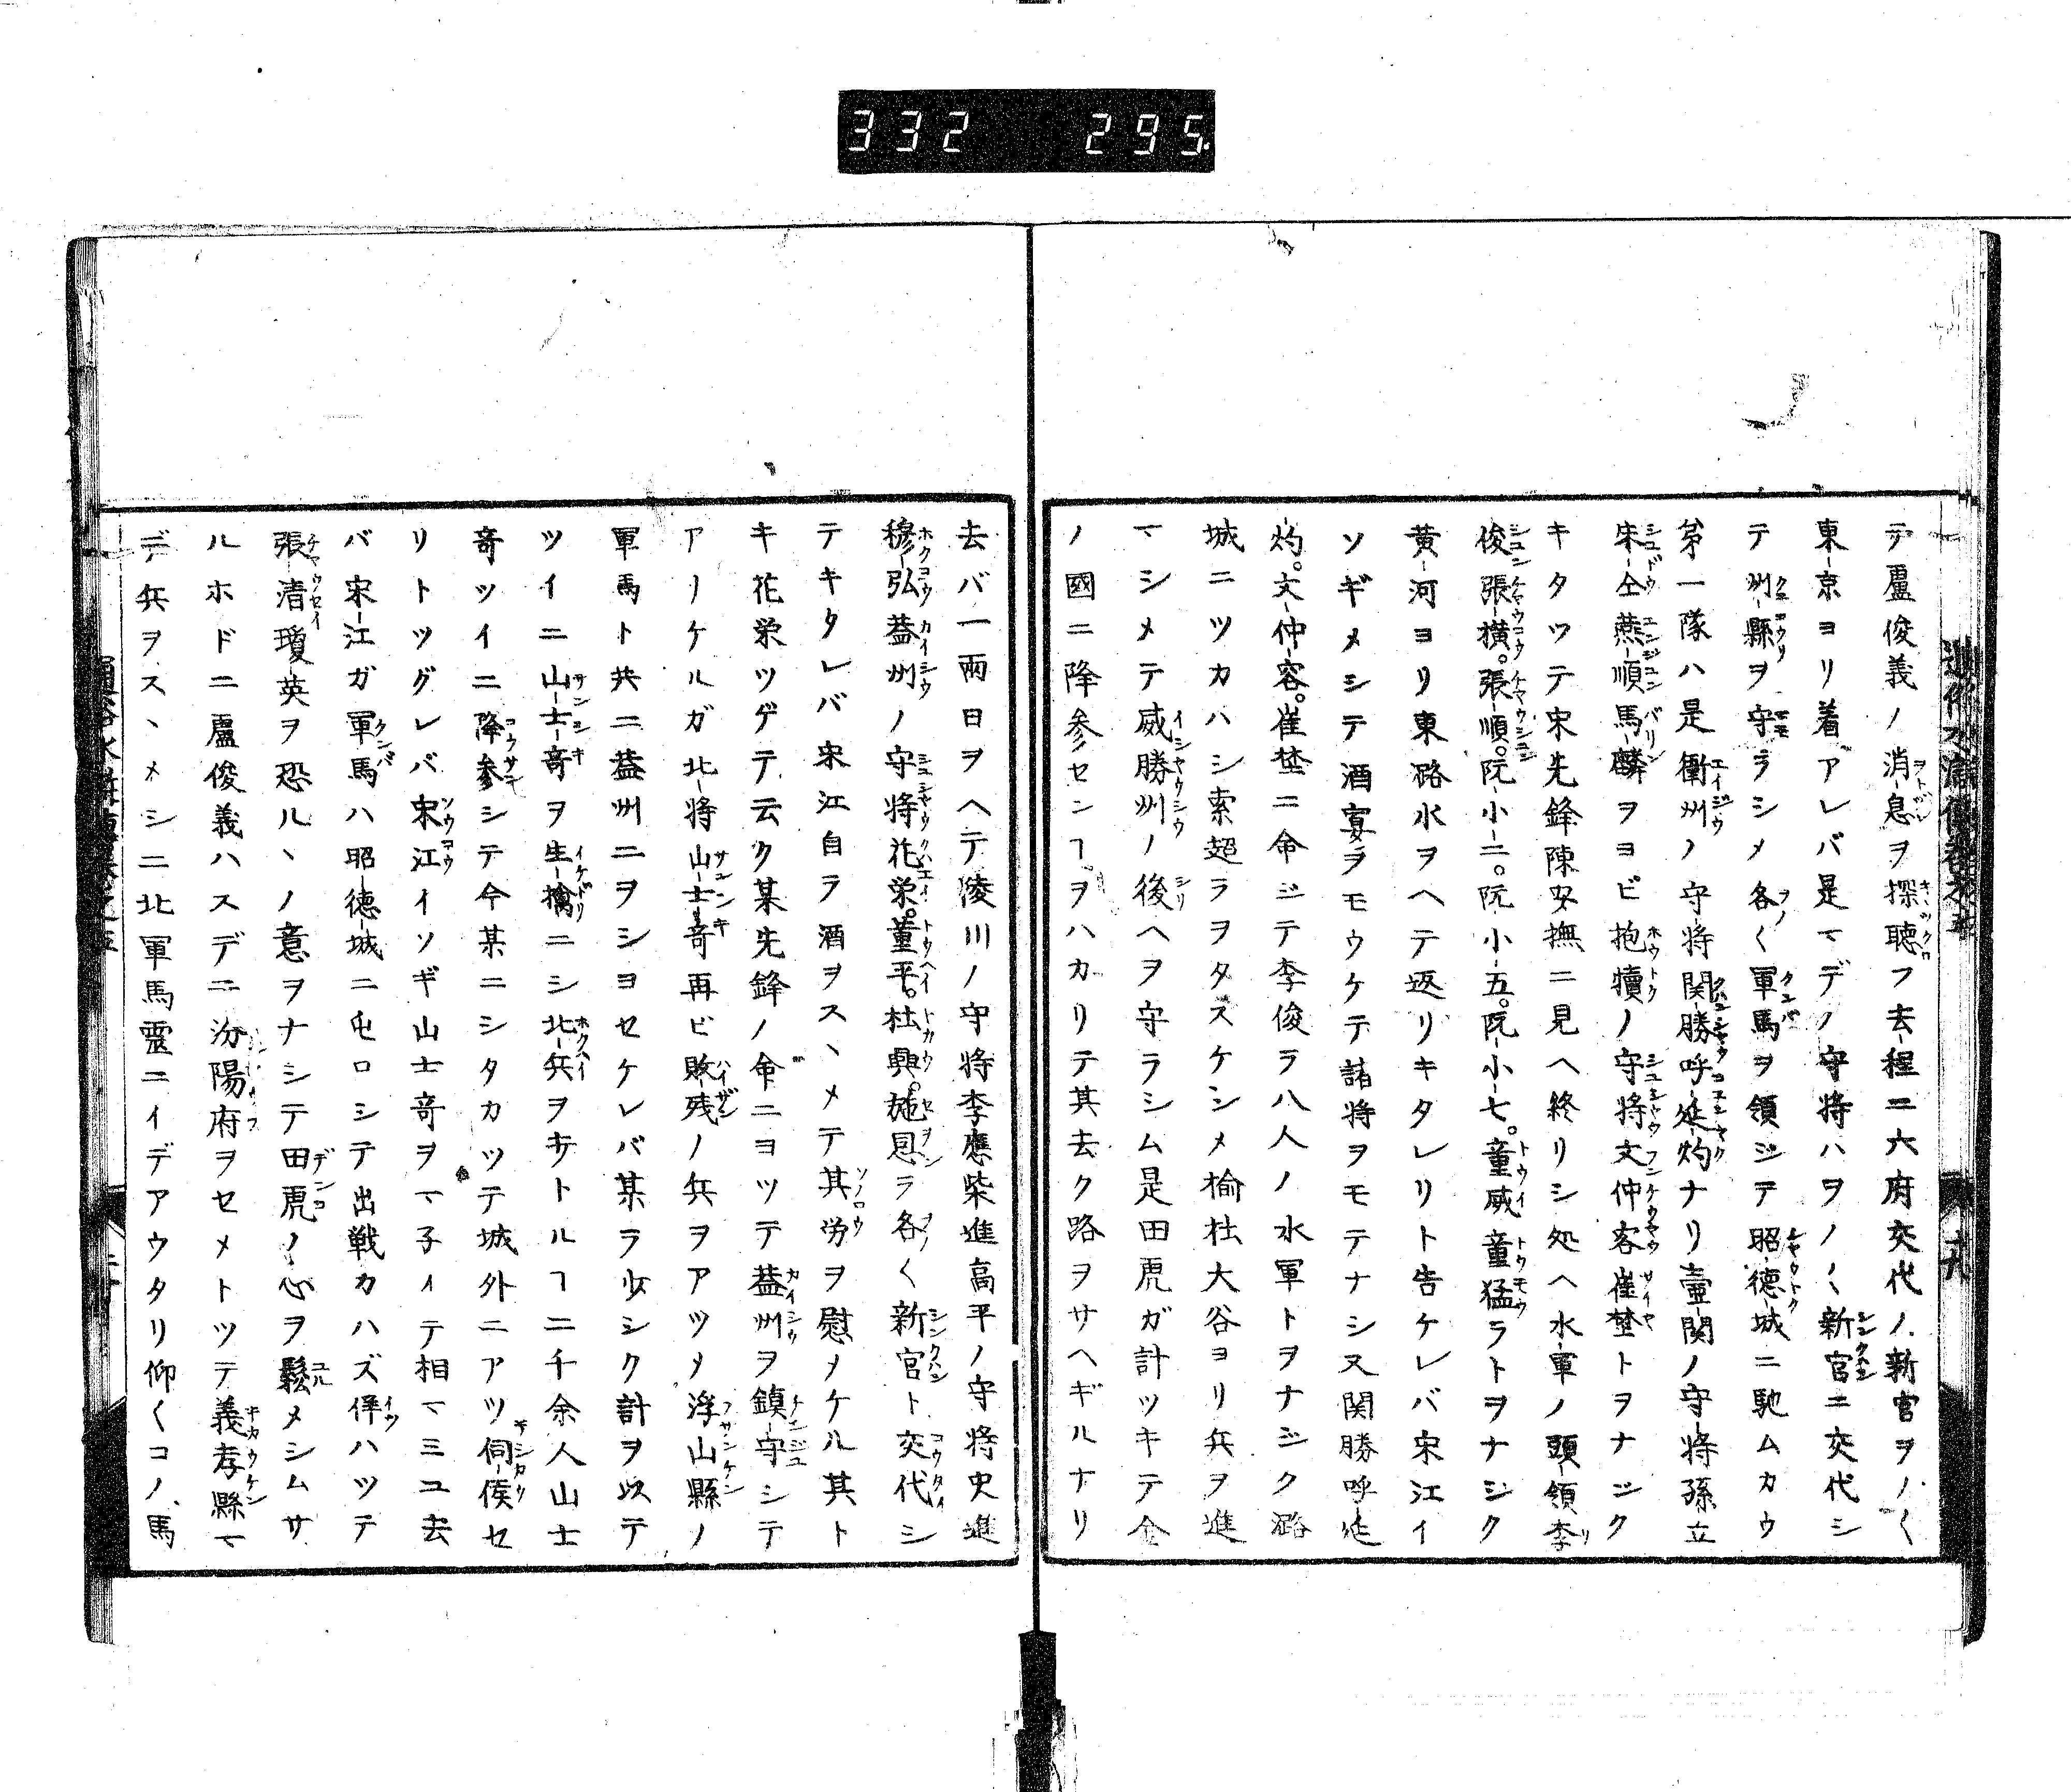 332 295.
テ盧俊義ノ消息ヲ探聴フ去程ニ六府交代ノ新官ヲノ〱
東京ヨリ着アレバ是マデノ守将ハヲノ〱新官ニ交代シ
テ州縣ヲ守ラシメ各〱軍馬ヲ領ジテ昭德城ニ馳ムカウ
第一隊ハ是衝州ノ守将関勝呼延灼ナリ壷関ノ守将孫立
朱仝燕順馬麟ヲヨビ抱犢ノ守将文仲容崔埜トヲナジク
キタツテ宋先鋒陳安撫ニ見ヘ終リシ処ヘ水軍ノ頭領李
俊張横。張順。阮小二。阮小五。阮小七。童威童猛ラトヲナジク
黄河ヨリ東路水ヲヘテ返リキタレリト告ケレバ宋江イ
ソギメシテ酒宴ヲモウケテ諸将ヲモテナシ又関勝呼延
灼。文仲容。崔埜ニ命ジテ李俊ラ八人ノ水軍トヲナジク潞
城ニツカハシ索超ラヲタスケシメ榆社大谷ヨリ兵ヲ進
マシメテ威勝州ノ後ヘヲ守ラシム是田虎ガ計ツキテ金
ノ國ニ降参センヿヲハカリテ其去ク路ヲサヘギルナリ
去バ一両日ヲヘテ陵川ノ守将李應柴進高平ノ守将史進
穆弘蓋州ノ守将花栄。董平。杜興。施恩ラ各〱新官ト交代シ
テキタレバ宋江自ラ酒ヲスヽメテ其労ヲ慰メケル其ト
キ花栄ツゲテ云ク某先鋒ノ命ニヨツテ蓋州ヲ鎮守シテ
アリケルガ北将山士竒再ビ敗残ノ兵ヲアツメ浮山縣ノ
軍馬ト共ニ蓋州ニヲシヨセケレバ某ラ少シク計ヲ以テ
ツイニ山士竒ヲ生擒ニシ北兵ヲ斫トルヿ二千余人山士
竒ツイニ降参シテ今某ニシタカツテ城外ニアツ伺候セ
リトツグレバ宋江イソギ山士竒ヲマ子イテ相マミユ去
バ宋江ガ軍馬ハ昭徳城ニ屯ロシテ出戦カハズ佯ハツテ
張清瓊英ヲ恐ルヽノ意ヲナシテ田虎ノ心ヲ鬆メシムサ
ルホドニ盧俊義ハスデニ汾陽府ヲセメトツテ義孝縣マ
デ兵ヲスヽメシニ北軍馬靈ニイデアウタリ仰〱コノ馬